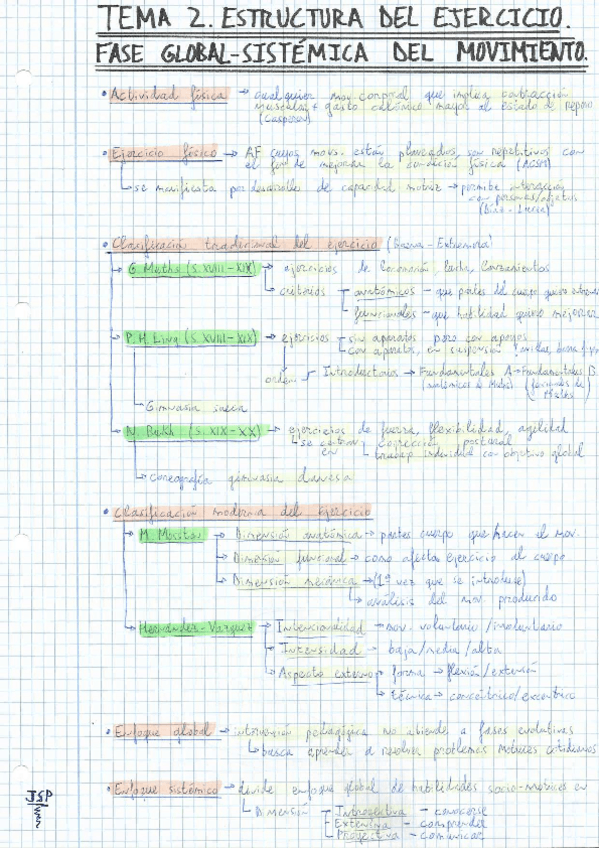 TEMA 2. ESTRUCTURA DEL EJERCICIO.
FASE GLOBAL-SISTÉMICA DEL MOVIMIENTO.
• Actividad física → cualquier mov. corporal que implica contracción
muscular + gasto calórico mayor al estado de reposo
(Caspersen)
• Ejercicio físico → AF cuyos movs. están planeados, son repetitivos con
el fin de mejorar la condición física (ACSM)
→ se manifiesta por desarrollo de capacidad motriz → permite interacción
con personas/objetos
• Clasificación tradicional del ejercicio
→ G. Muths (S. XVIII - XIX) → ejercicios de coordinación, lucha, lanzamientos
→ criterios anatómicos - que partes del cuerpo quiero
funcionales - que habilidad quiero mejorar
→ P. H. Ling (S. XVIII - XIX) → ejercicios sin aparatos pero con apoyos
con aparatos, en suspensión
orden Introductorios → Fundamentales A → Fundamentales B
(anatómicos de Muths) (funcionales de Muths)
Gimnasia sueca
→ N. Bukh (S. XIX - XX) → ejercicios de fuerza, flexibilidad, agilidad
se centran en corrección postural
trabajo individual con objetivo global
→ coreografía gimnasia danesa
• Clasificación moderna del ejercicio
→ M. Mosston → Dimensión anatómica → partes cuerpo que hacen el mov.
→ Dimensión funcional → como afecta ejercicio al cuerpo
→ Dimensión mecánica → (1ª vez que se introduce)
→ análisis del mov. producido
→ Hernández-Vázquez → Intencionalidad → mov. voluntario/involuntario
→ Intensidad → baja/media/alta
→ Aspecto externo → forma → flexión/extensión
→ técnica → concéntrico/excéntrico
• Enfoque global → intervención pedagógica no atiende a fases evolutivas
→ busca aprender a resolver problemas motrices cotidianos
• Enfoque sistémico → divide enfoque global de habilidades socio-motrices en
JSP
→ Dimensión Introyectiva - conocerse
Extensiva - comprender
Proyectiva - comunicar